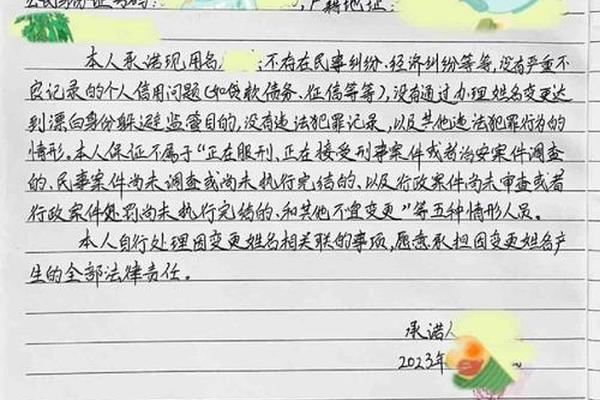 公民身份证号码：，户籍地址：
本人承诺现用名：不存在民事纠纷、经济纠纷等等，没有严重不
良记录的个人信用问题（如贷款债务、征信等等），没有通过办理姓名变更达
到漂白身份躲避监管目的，没有违法犯罪记录，以及其他违法犯罪行为的
情形。本人保证不属于“正在服刑、正在接受刑事案件或者治安案件调查
的、民事案件尚未调查或尚未执行完结的、以及行政案件尚未审查或者
行政案件处罚尚未执行完结的、和其他不宜变更”等五种情形人员。
本人自行处理因变更姓名相关联的事项，愿意承担因变更姓名产
生的全部法律责任。
承诺人
2023年